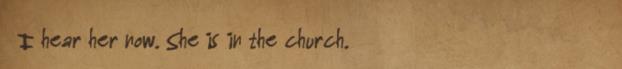 I hear her now. She is in the church.